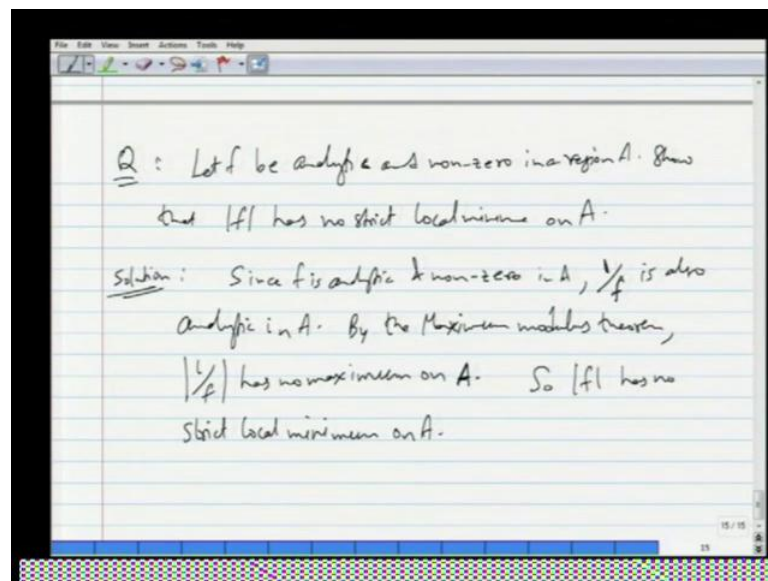 File Edit View Insert Actions Tools Help
Q : Let f be analytic and non-zero in a region A. Show
that |f| has no strict local minimum on A.
Solution : Since f is analytic & non-zero in A, 1/f is also
analytic in A. By the Maximum modulus theorem,
|1/f| has no maximum on A. So |f| has no
strict local minimum on A.
15 / 15
15